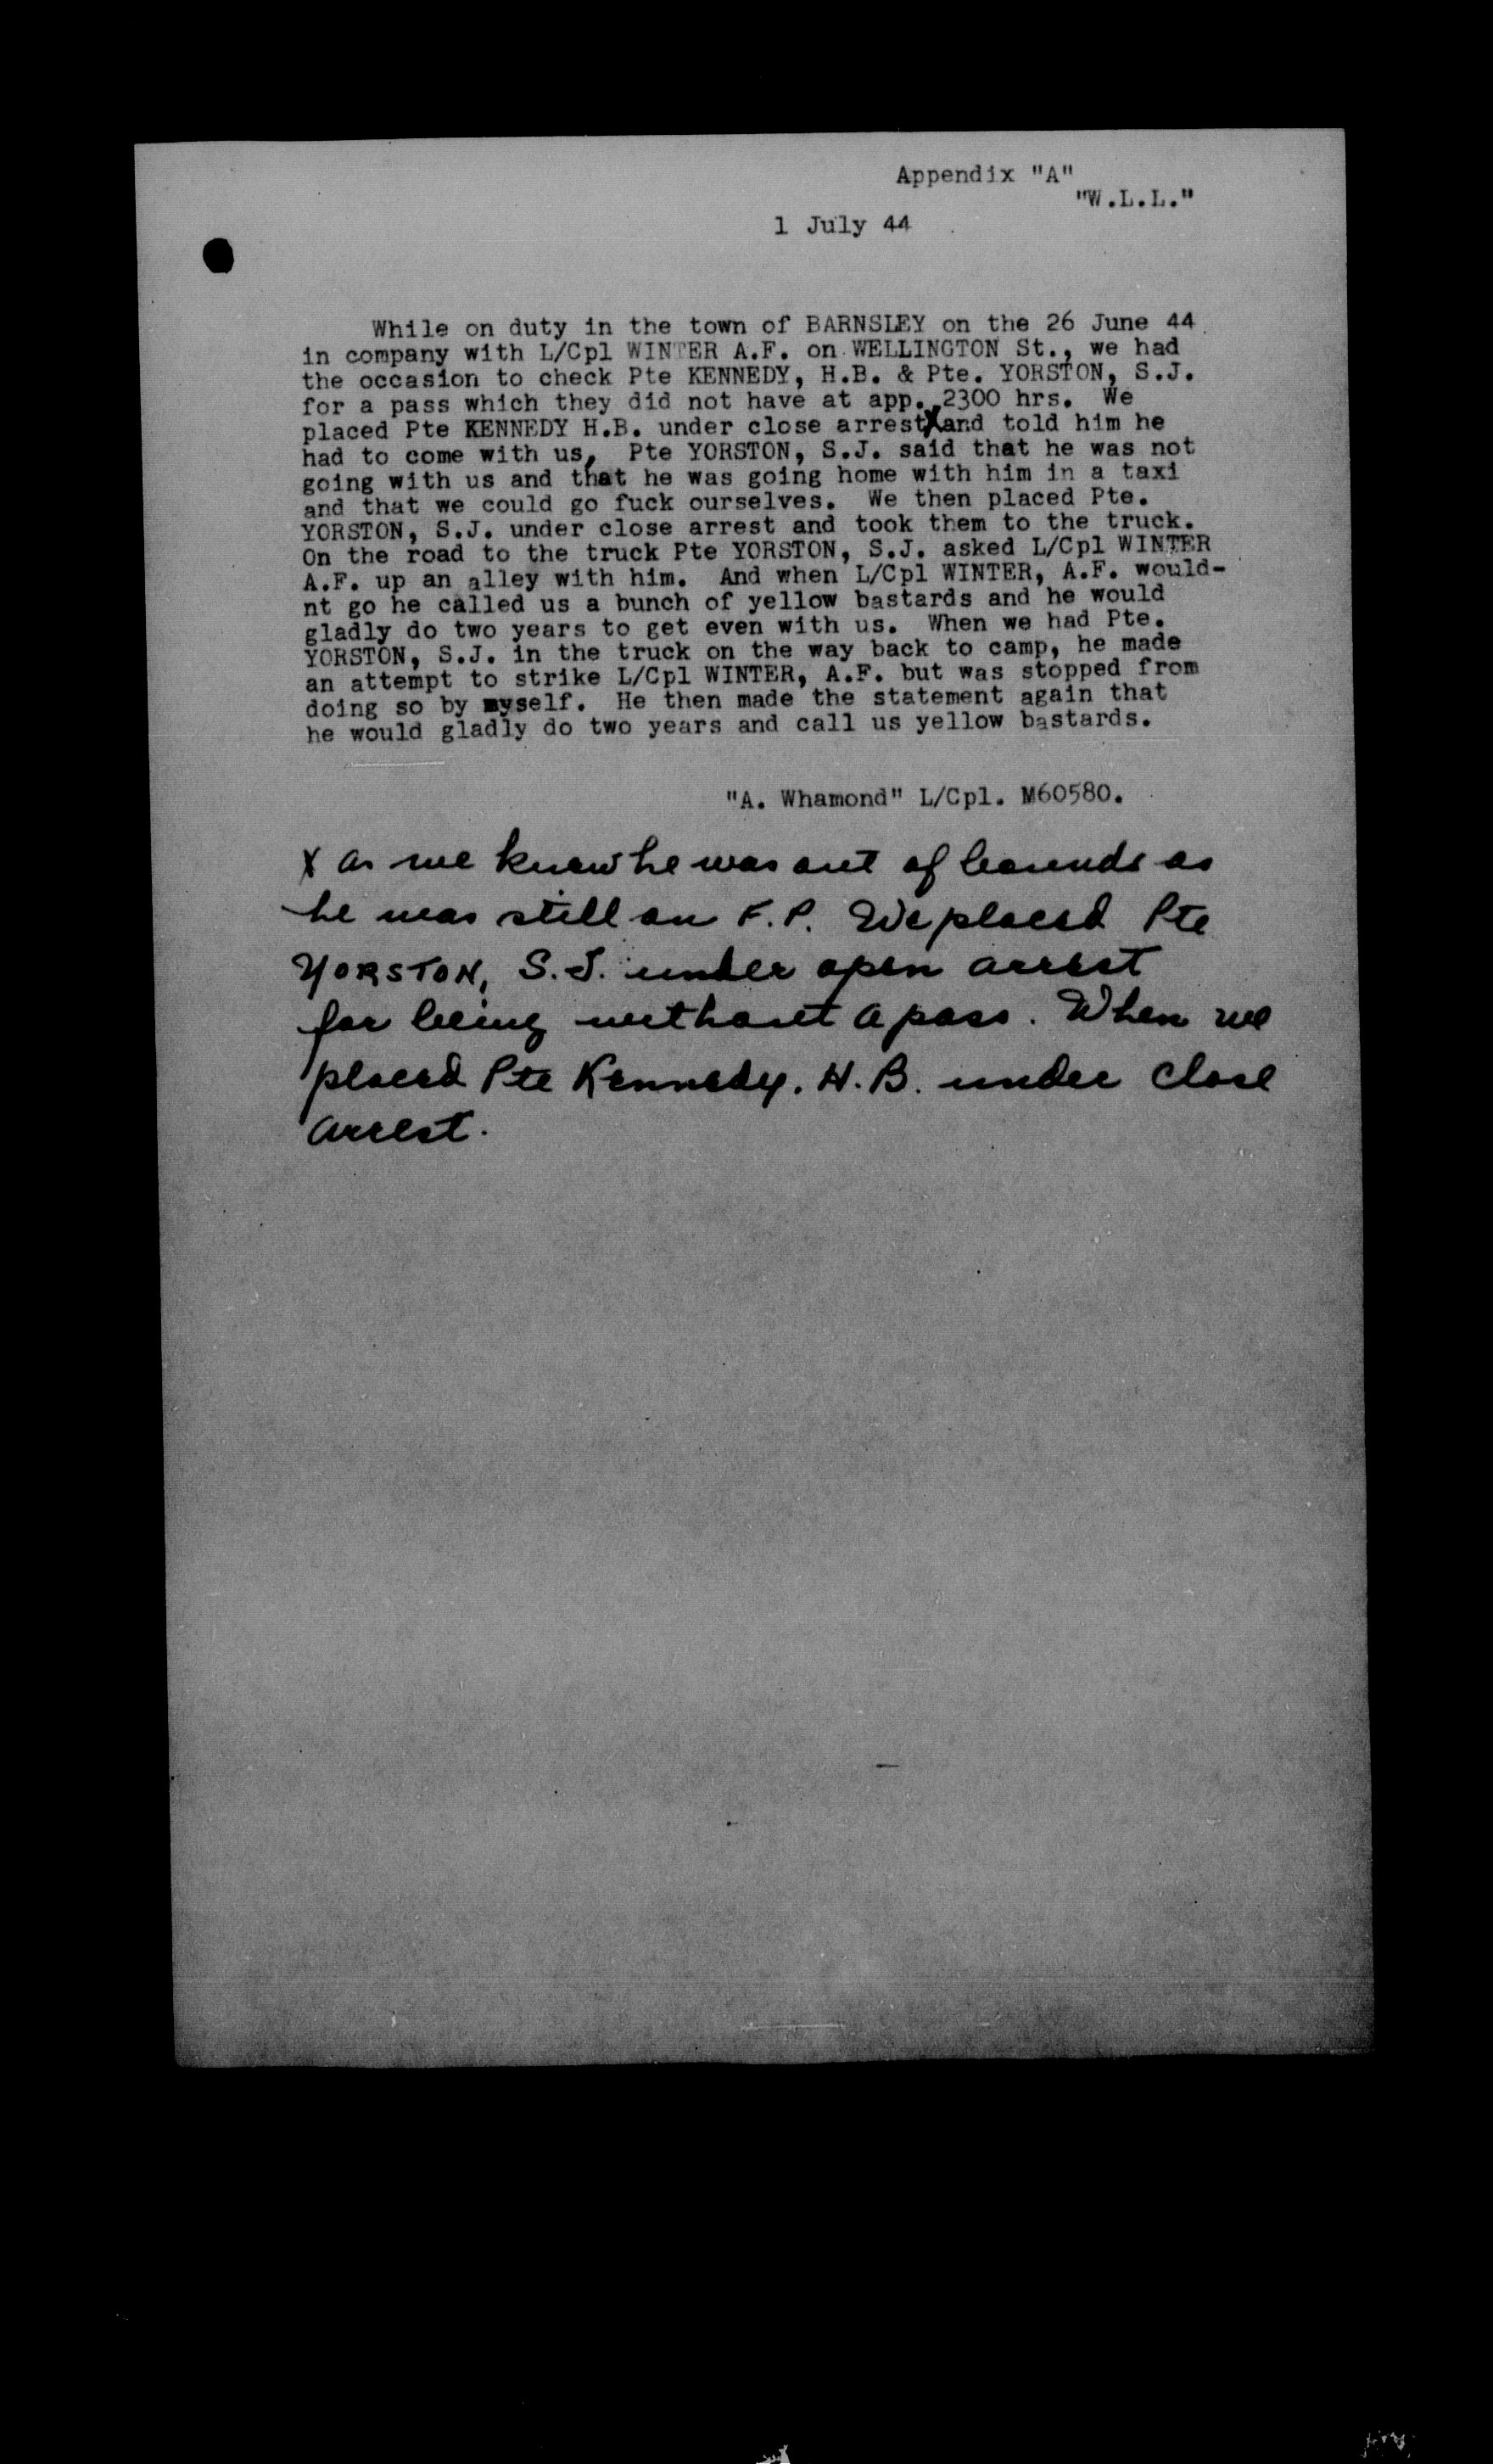 Appendix "A"
"W.L.L."
1 July 44
While on duty in the town of BARNSLEY on the 26 June 44
in company with L/Cpl WINTER A.F. on WELLINGTON St., we had
the occasion to check Pte KENNEDY, H.B. & Pte. YORSTON, S.J.
for a pass which they did not have at app. 2300 hrs. We
placed Pte KENNEDY H.B. under close arrest X and told him he
had to come with us, Pte YORSTON, S.J. said that he was not
going with us and that he was going home with him in a taxi
and that we could go fuck ourselves. We then placed Pte.
YORSTON, S.J. under close arrest and took them to the truck.
On the road to the truck Pte YORSTON, S.J. asked L/Cpl WINTER
A.F. up an alley with him. And when L/Cpl WINTER, A.F. would-
nt go he called us a bunch of yellow bastards and he would
gladly do two years to get even with us. When we had Pte.
YORSTON, S.J. in the truck on the way back to camp, he made
an attempt to strike L/Cpl WINTER, A.F. but was stopped from
doing so by myself. He then made the statement again that
he would gladly do two years and call us yellow bastards.
"A. Whamond" L/Cpl. M60580.
X as we knew he was out of bounds as
he was still on F.P. We placed Pte
YORSTON, S.J. under open arrest
for being without a pass. When we
placed Pte Kennedy. H.B. under close
arrest.